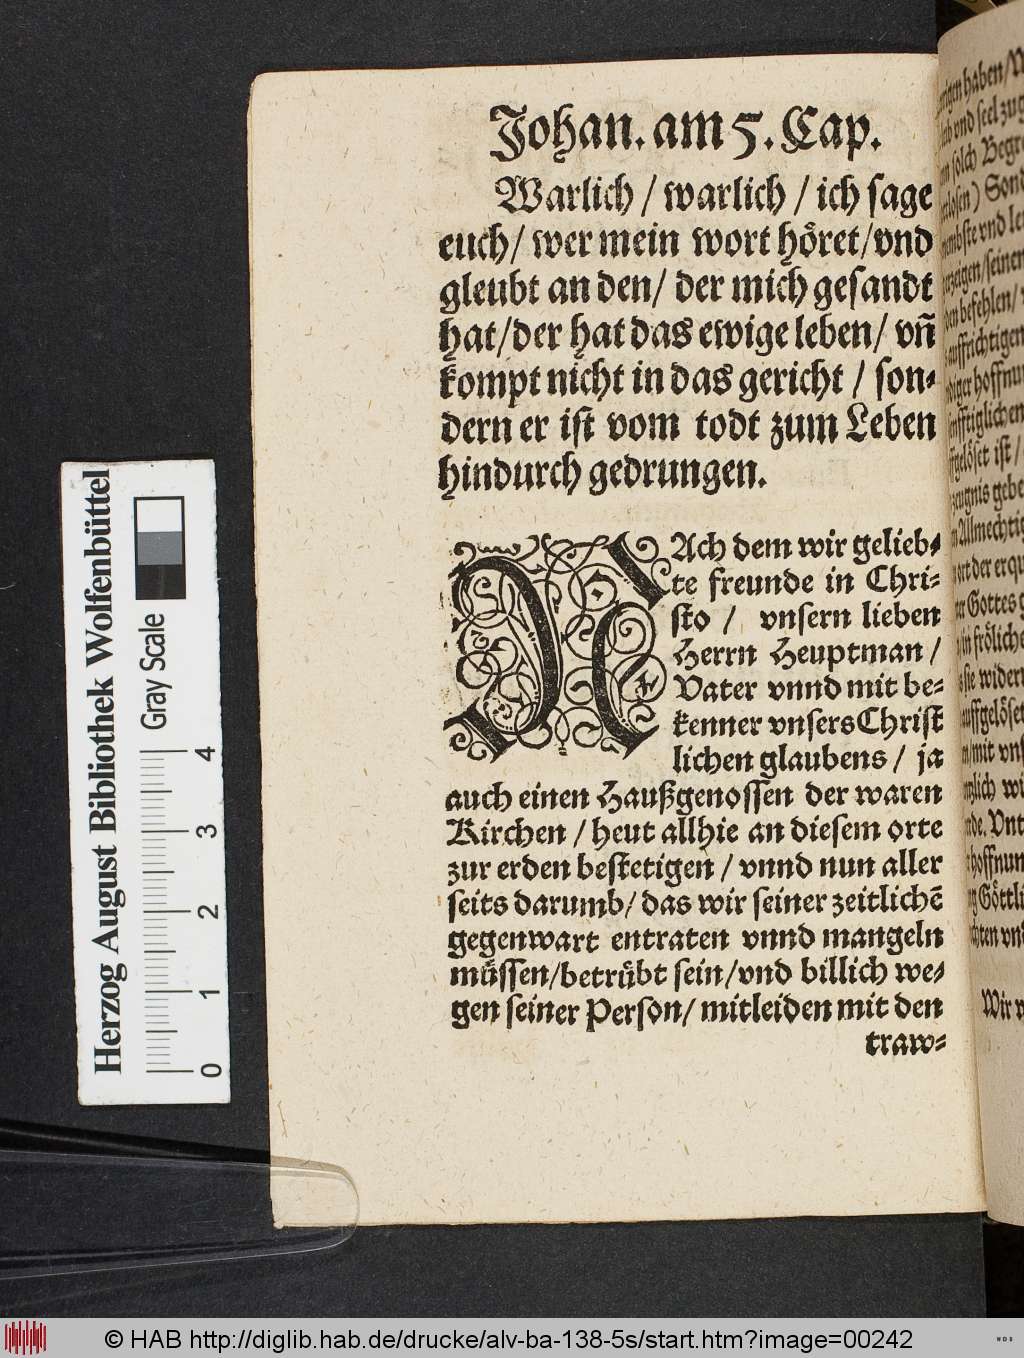 Johan. am 5. Cap.
Warlich / warlich / ich sage
euch / wer mein wort höret / vnd
gleubt an den / der mich gesandt
hat / der hat das ewige leben / vñ
kompt nicht in das gericht / son⸗
dern er ist vom todt zum Leben
hindurch gedrungen.
NAch dem wir gelieb⸗
te freunde in Chri⸗
sto / vnsern lieben
Herrn Heuptman /
Vater vnnd mit be⸗
kenner vnsers Christ
lichen glaubens / ja
auch einen Haußgenossen der waren
Kirchen / heut allhie an diesem orte
zur erden bestetigen / vnnd nun aller
seits darumb / das wir seiner zeitlichẽ
gegenwart entraten vnnd mangeln
müssen / betrübt sein / vnd billich we⸗
gen seiner Person / mitleiden mit den
traw⸗
Herzog August Bibliothek Wolfenbüttel
Gray Scale
0 1 2 3 4
© HAB http://diglib.hab.de/drucke/alv-ba-138-5s/start.htm?image=00242